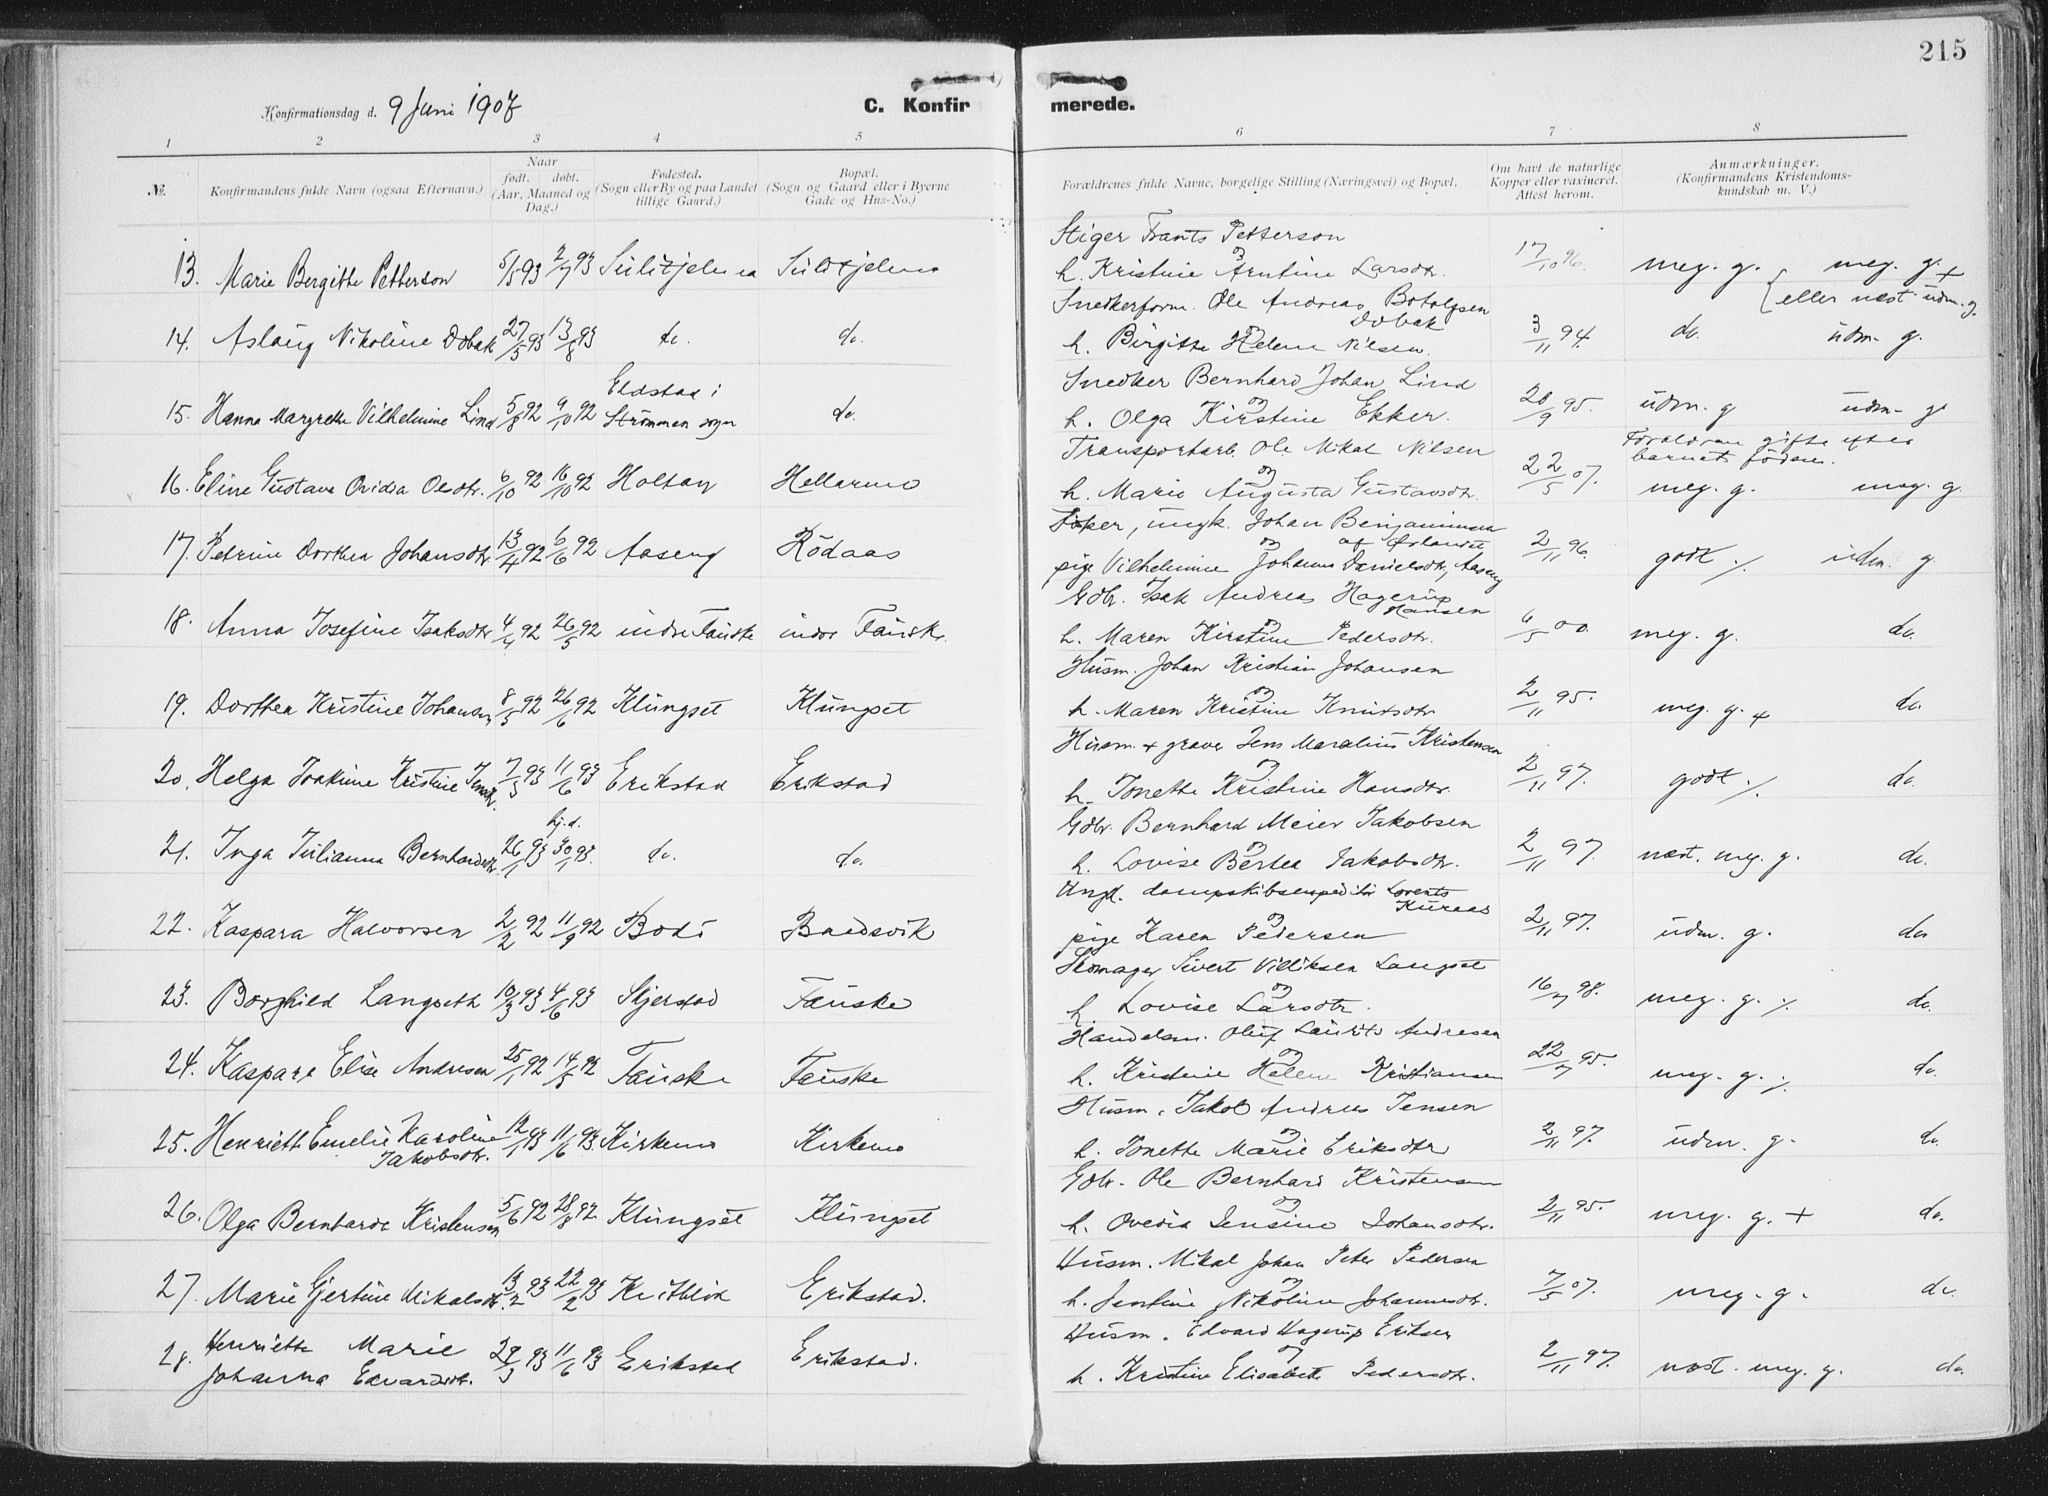 215
Konfirmationsdag d. 9 Juni 1907
C. Konfirmerede.
1 2 3 4 5 6 7 8
№.
Konfirmandens fulde Navn (ogsaa Efternavn.)
Naar født. døbt. (Aar, Maaned og Dag.)
Fødested. (Sogn eller By og paa Landet tillige Gaard.)
Bopæl. (Sogn og Gaard eller i Byerne Gade og Hus-No.)
Forældrenes fulde Navne, borgelige Stilling (Næringsvei) og Bopæl.
Om havt de naturlige Kopper eller vaxineret. Attest herom.
Anmærkninger. (Konfirmandens Kristendomskundskab m. V.)
Stiger Frants Petterson
og
13. Marie Bergitte Petterson 5/5 93 2/7 93 Sulitjelma Sulitjelma h. Kristine Arntine Larsdtr. 17/10 96. meg. g. meg. g. +
(eller næst udm. g.
Snedkerform. Ole Andreas Botolfsen Dobak
og
14. Aslaug Nikoline Dobak 27/5 93 13/8 93 do. do. h. Birgitte Helene Nilsen. 3/11 94. do. udm. g.
Snedker Bernhard Johan Lind
og
15. Hanna Margrethe Vilhelmine Lind 5/8 92 9/10 92 Eldstad i Strömmen sogn do. h. Olga Kirstine Ekker. 20/9 95. udm. g udm. g
Transportarb. Ole Mikal Nilsen
og
Forældrene gifte efter barnets födsel.
16. Eline Gustava Ovidia Olsdtr. 6/10 92 16/10 92 Holtan Hellarmo h. Marie Augusta Gustavsdtr. 22/5 07. meg. g. meg. g
Fisker, ungk. Johan Benjaminsen af Ørlandet
og
17. Petrine Dorthea Johansdtr. 13/4 92 6/6 92 Aaseng Rödaas pige Vilhelmine Johanna Danielsdtr, Aaseng 2/11 96. godt % udm. g
Gdbr. Isak Andreas Hagerup Hansen
og
18. Anna Josefine Isaksdtr 4/4 92 26/5 92 indre Fauske indre Fauske. h. Maren Kirstine Pedersdtr. 6/5 00. meg. g. do.
Husm. Johan Kristian Johansen
og
19. Dorthea Kristine Johansen 8/5 92 26/6 92 Klungset Klungset h. Maren Kristine Knutsdtr. 2/11 95. meg. g. + do.
Husm. + graver Jens Maralius Kristensen
og
20. Helga Joakime Kristine Jensdtr. 7/3 93 11/6 93 Erikstad Erikstad h. Tonette Kristine Hansdtr. 2/11 97. godt % do.
hj. d.
Gdbr. Bernhard Meier Jakobsen
og
21. Inga Julianna Bernhardsdtr. 26/1 93 30/1 93. do. do. h. Lovise Bertea Jakobsdtr. 2/11 97. næst. meg. g. do.
Ungk. dampskibsexpeditör Lorents Kuraas
og
22. Kaspara Halvorsen 2/2 92 11/9 92 Bodö Baadsvik pige Karen Pedersen 2/11 97. udm. g. do
Skomager Sivert Villiksen Langset
og
23. Borghild Langseth 10/3 93 4/6 93 Skjerstad Fauske h. Lovise Larsdtr. 16/7 98. meg. g. % do.
Handelsm. Oluf Laurits Andresen
og
24. Kaspara Elise Andresen 25/1 92 14/5 92 Fauske Fauske h. Kristine Helene Kristiansen 22/7 95. meg. g. % do.
Husm. Jakob Andreas Jensen
og
25. Henriett Emelie Karoline Jakobsdtr. 12/1 93 11/6 93. Kirkemo Kirkemo h. Tonette Marie Eriksdtr 2/11 97. udm. g. do.
Gdbr. Ole Bernhard Kristensen
og
26. Olga Bernharda Kristensen 5/6 92 28/8 92 Klungset Klungset h. Ovedia Jensine Johansdtr. 2/11 95. meg. g. + do.
Husm. Mikal Johan Peter Pedersen
og
27. Marie Gjertine Mikalsdtr. 13/2 93 22/2 93 Kvitblik Erikstad. h. Jentine Nikoline Johannesdtr. 7/5 07. meg. g. do.
Husm. Edvard Hagerup Eriksen
og
28. Henriette Marie Johanna Edvardsdtr. 29/3 93 11/6 93 Erikstad Erikstad. h. Kristine Elisabeth Pedersdtr. 2/11 97. næst. meg. g. do.